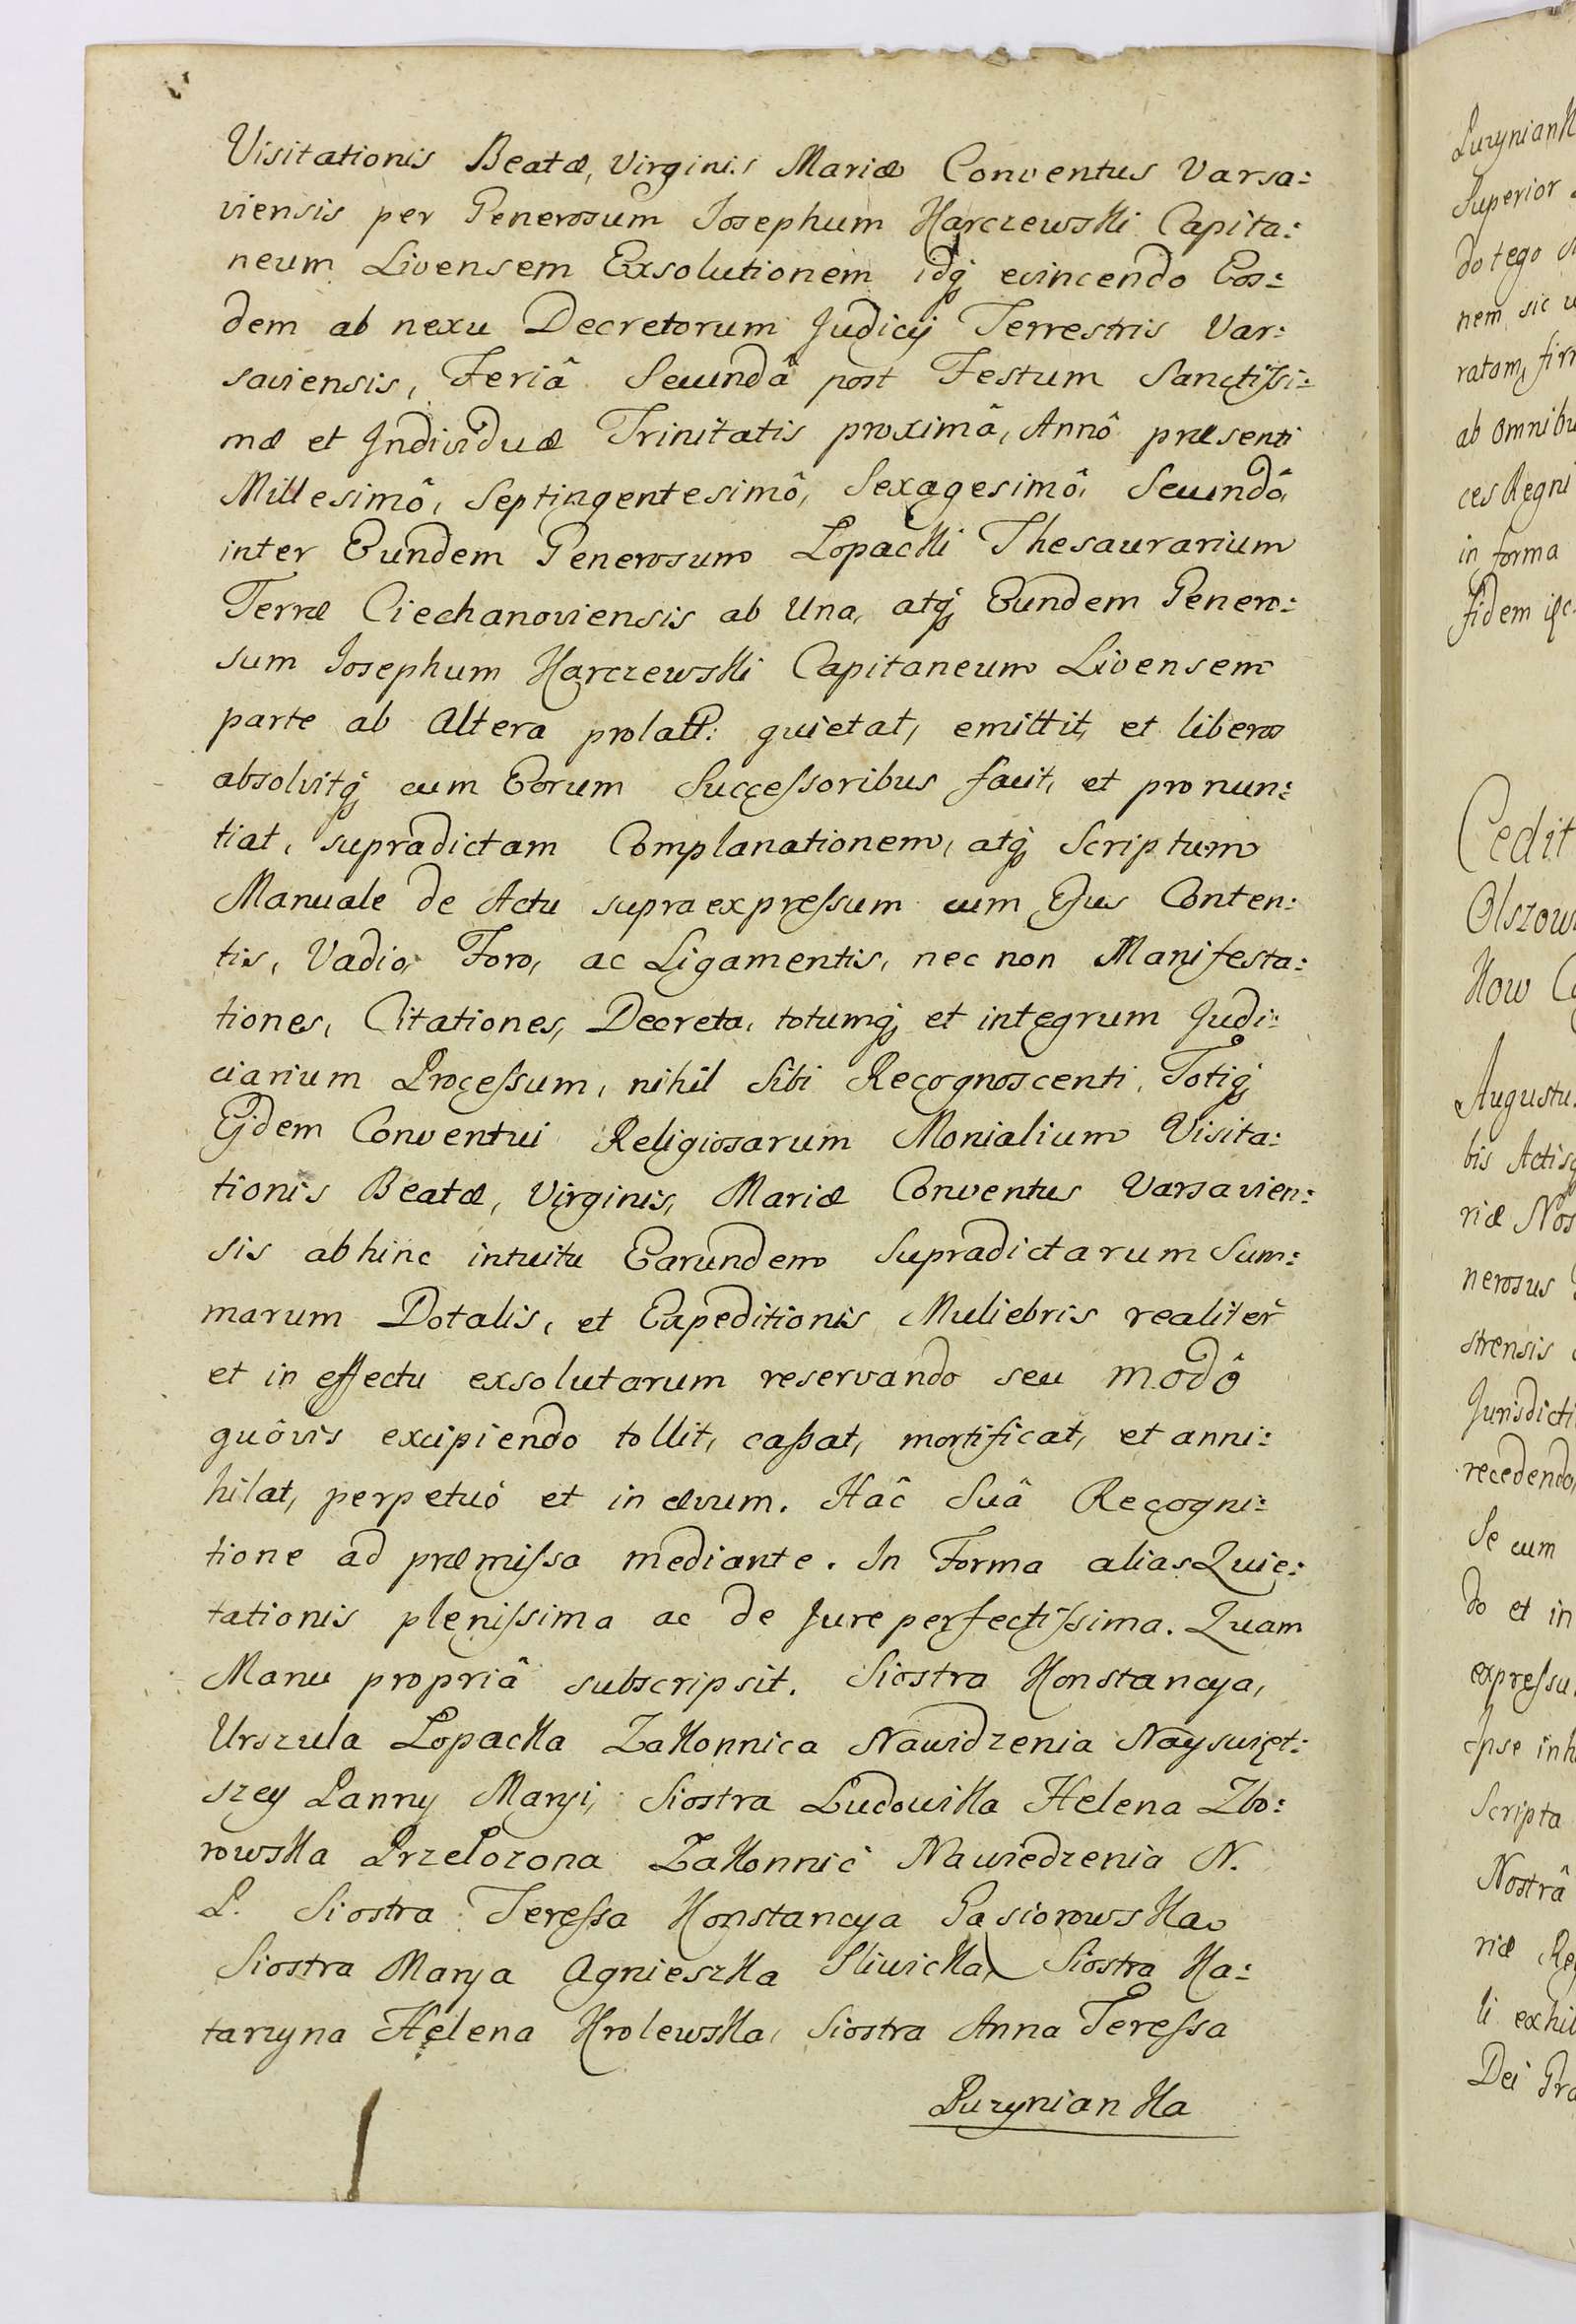 Visitationis Beatæ, Virginis Mariæ Conventus Varsa:
viensis per Generosum Josephum Karczewski Capita:
neum Livensem Exsolutionem idq; evincendo Eos:
dem ab nexu Decretorum Judicij Terrestris Var:
saviensis, Feriâ Secundâ post Festum Sanctissi:
mæ et Individuæ Trinitatis proximâ, Annô præsenti
Millesimô, Septingentesimô, Sexagesimô, Secundô,
inter Eundem Generosum Łopacki Thesaurarium
Terræ Ciechanoviensis ab Una, atq; Eundem Genero:
sum Josephum Karczewski Capitaneum Livensem
parte ab Altera prolatt: quietat, emittit, et liberos
absolvitq; cum Eorum Successoribus facit, et pronun:
tiat, supradictam Complanationem, atq; Scriptum
Manuale de Actu supraexpressum cum Ejus Conten:
tis, Vadio, Foro, ac Ligamentis, nec non Manifesta:
tiones, Citationes, Decreta, totumq; et integrum Judi:
ciarium Processum, nihil Sibi Recognoscenti, Totiq;
Ejdem Conventui Religiosarum Monialium Visita:
tionis Beatæ, Virginis, Mariæ Conventus Varsavien:
sis abhinc intuitu Earundem Supradictarum Sum:
marum Dotalis, et Expeditionis Muliebris realiter
et in effectu exsolutarum reservando seu modô
quôvis excipiendo tollit, cassat, mortificat, et anni:
hilat, perpetuò et in ævum. Hâc Suâ Recogni:
tione ad præmissa mediante. In Forma alias Quie:
tationis plenissima ac de Jure perfectissima. Quam
Manu propriâ subscripsit. Siostra Konstancya,
Urszula Łopacka Zakonnica Nawidzenia Nayswięt:
szey Panny Maryi, Siostra Ludowika Helena Zbo:
rowska Przełozona Zakonnic Nawiedzenia N.
P. Siostra Teressa Konstancya Gasiorowska
Siostra Marya Agnieszka Sliwicka, Siostra Ka:
tarzyna Helena Krolewska, Siostra Anna Teressa
Puzynianka
Puzyniank
Superior
do tego
nem, sic
ratam, fir
ab omnibu
ces Regni
in forma
fidem
Cedit
Olszow
kow
Augustu
bis Actis
riæ Nos
nerosus
strensis
Jurisdicti
recedendo
Se cum
do et in
expressu
Ipse inh
Scripta
Nostrâ
riæ Re
li exhi
Dei Gra